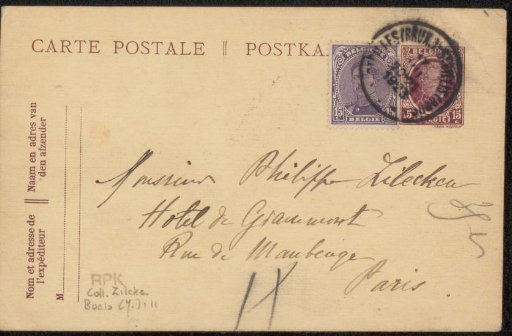 CARTE POSTALE || POSTKA
BELGIQUE
15
BELGIË
15
15c
15c
Naam en adres van
den afzender
Nom et adresse de
l'expéditeur
M
Monsieur Philippe Zilcken
Hotel de Grammont
Rue de Maubeuge
Paris.
RPK
Coll. Zilcken